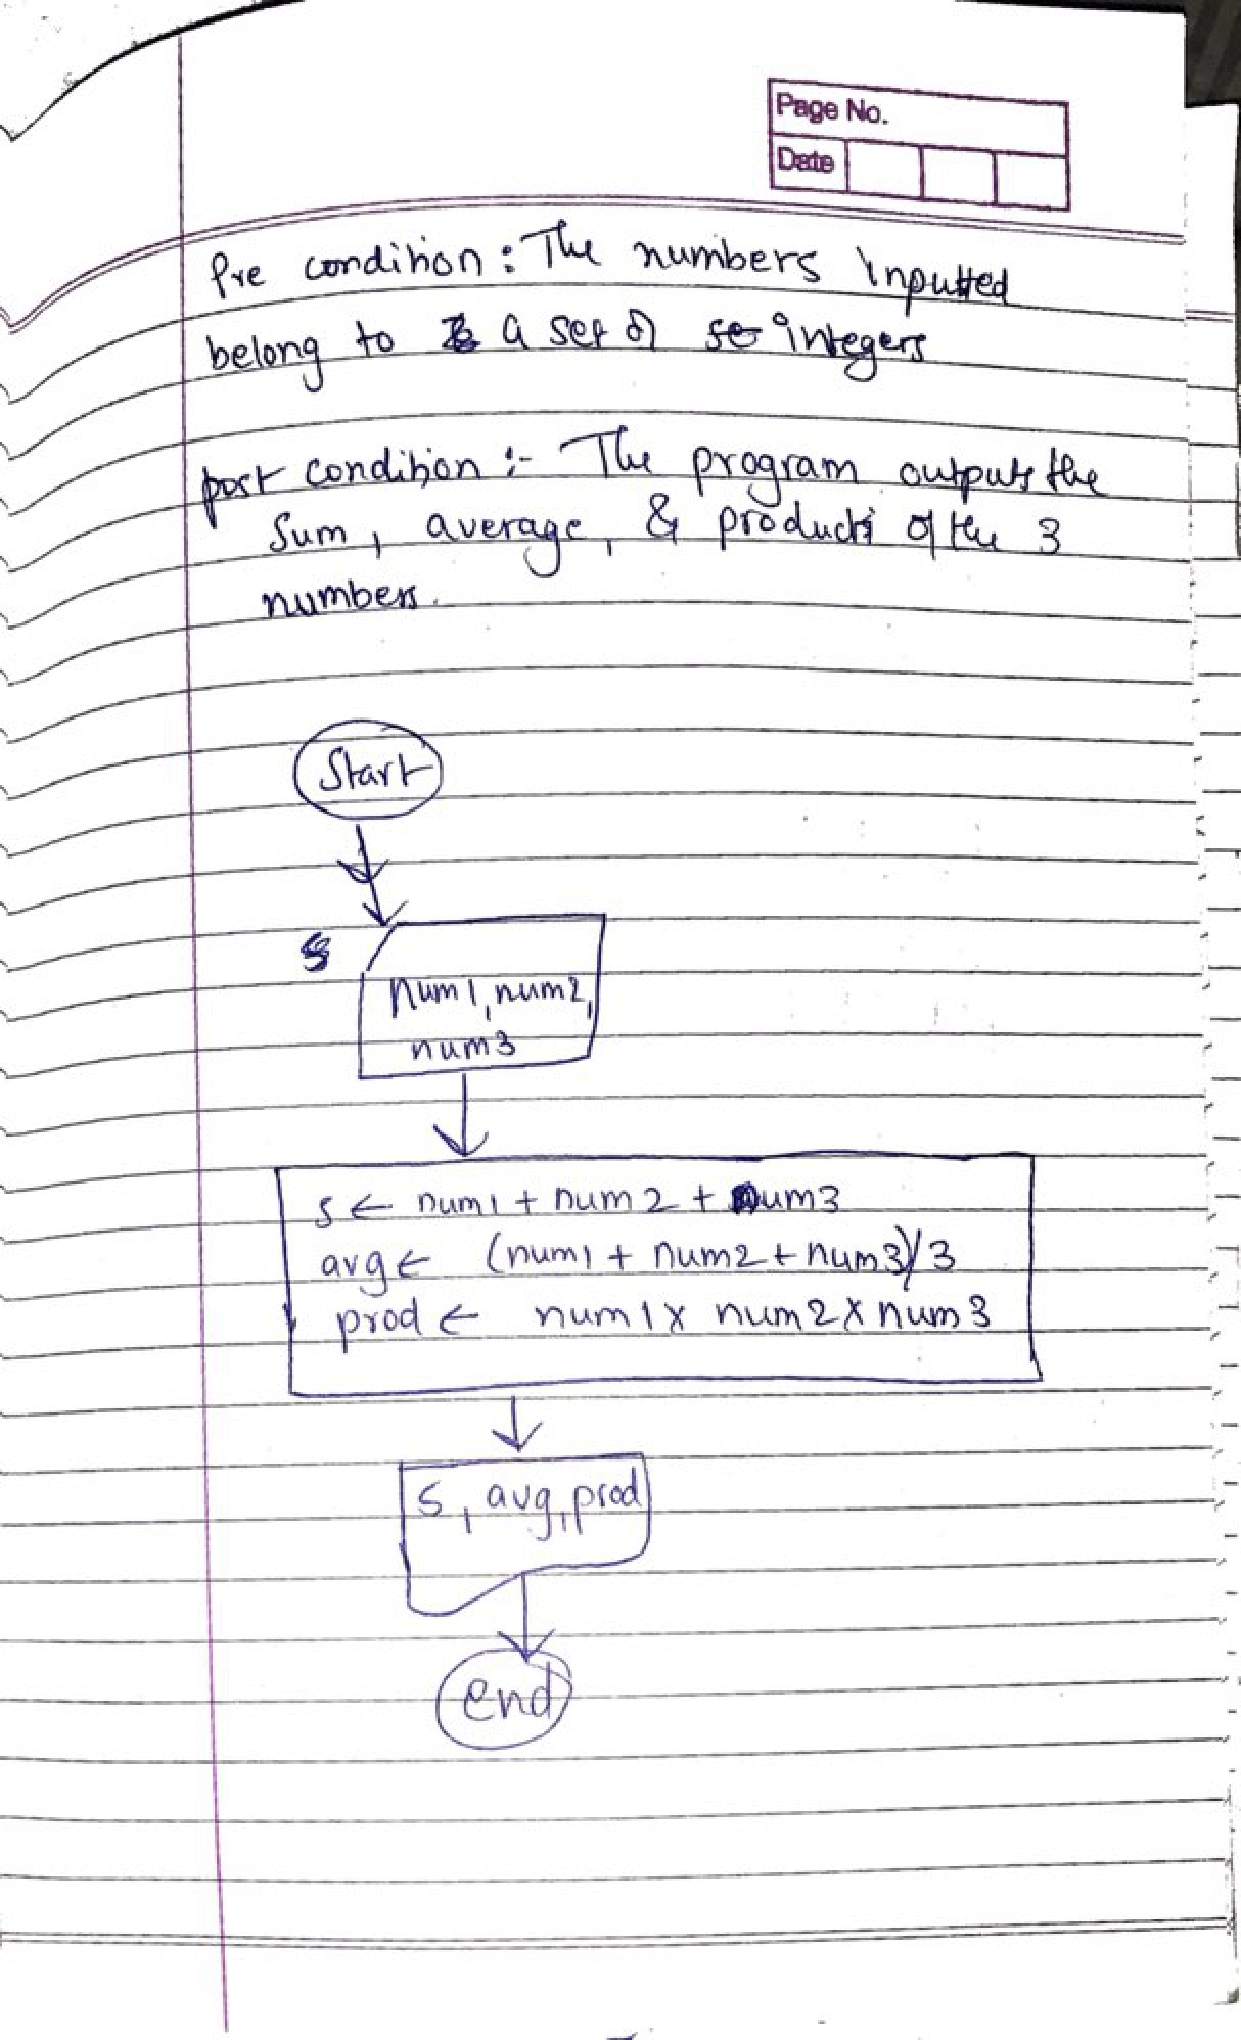 Page No.
Date
Pre condition : The numbers inputted
belong to a set of integers
post condition :- The program outputs the
Sum, average, & products of the 3
numbers.
Start
num1, num2,
num3
s ← num1 + num2 + num3
avg ← (num1 + num2 + num3)/3
prod ← num1 x num2 x num3
s, avg, prod
end